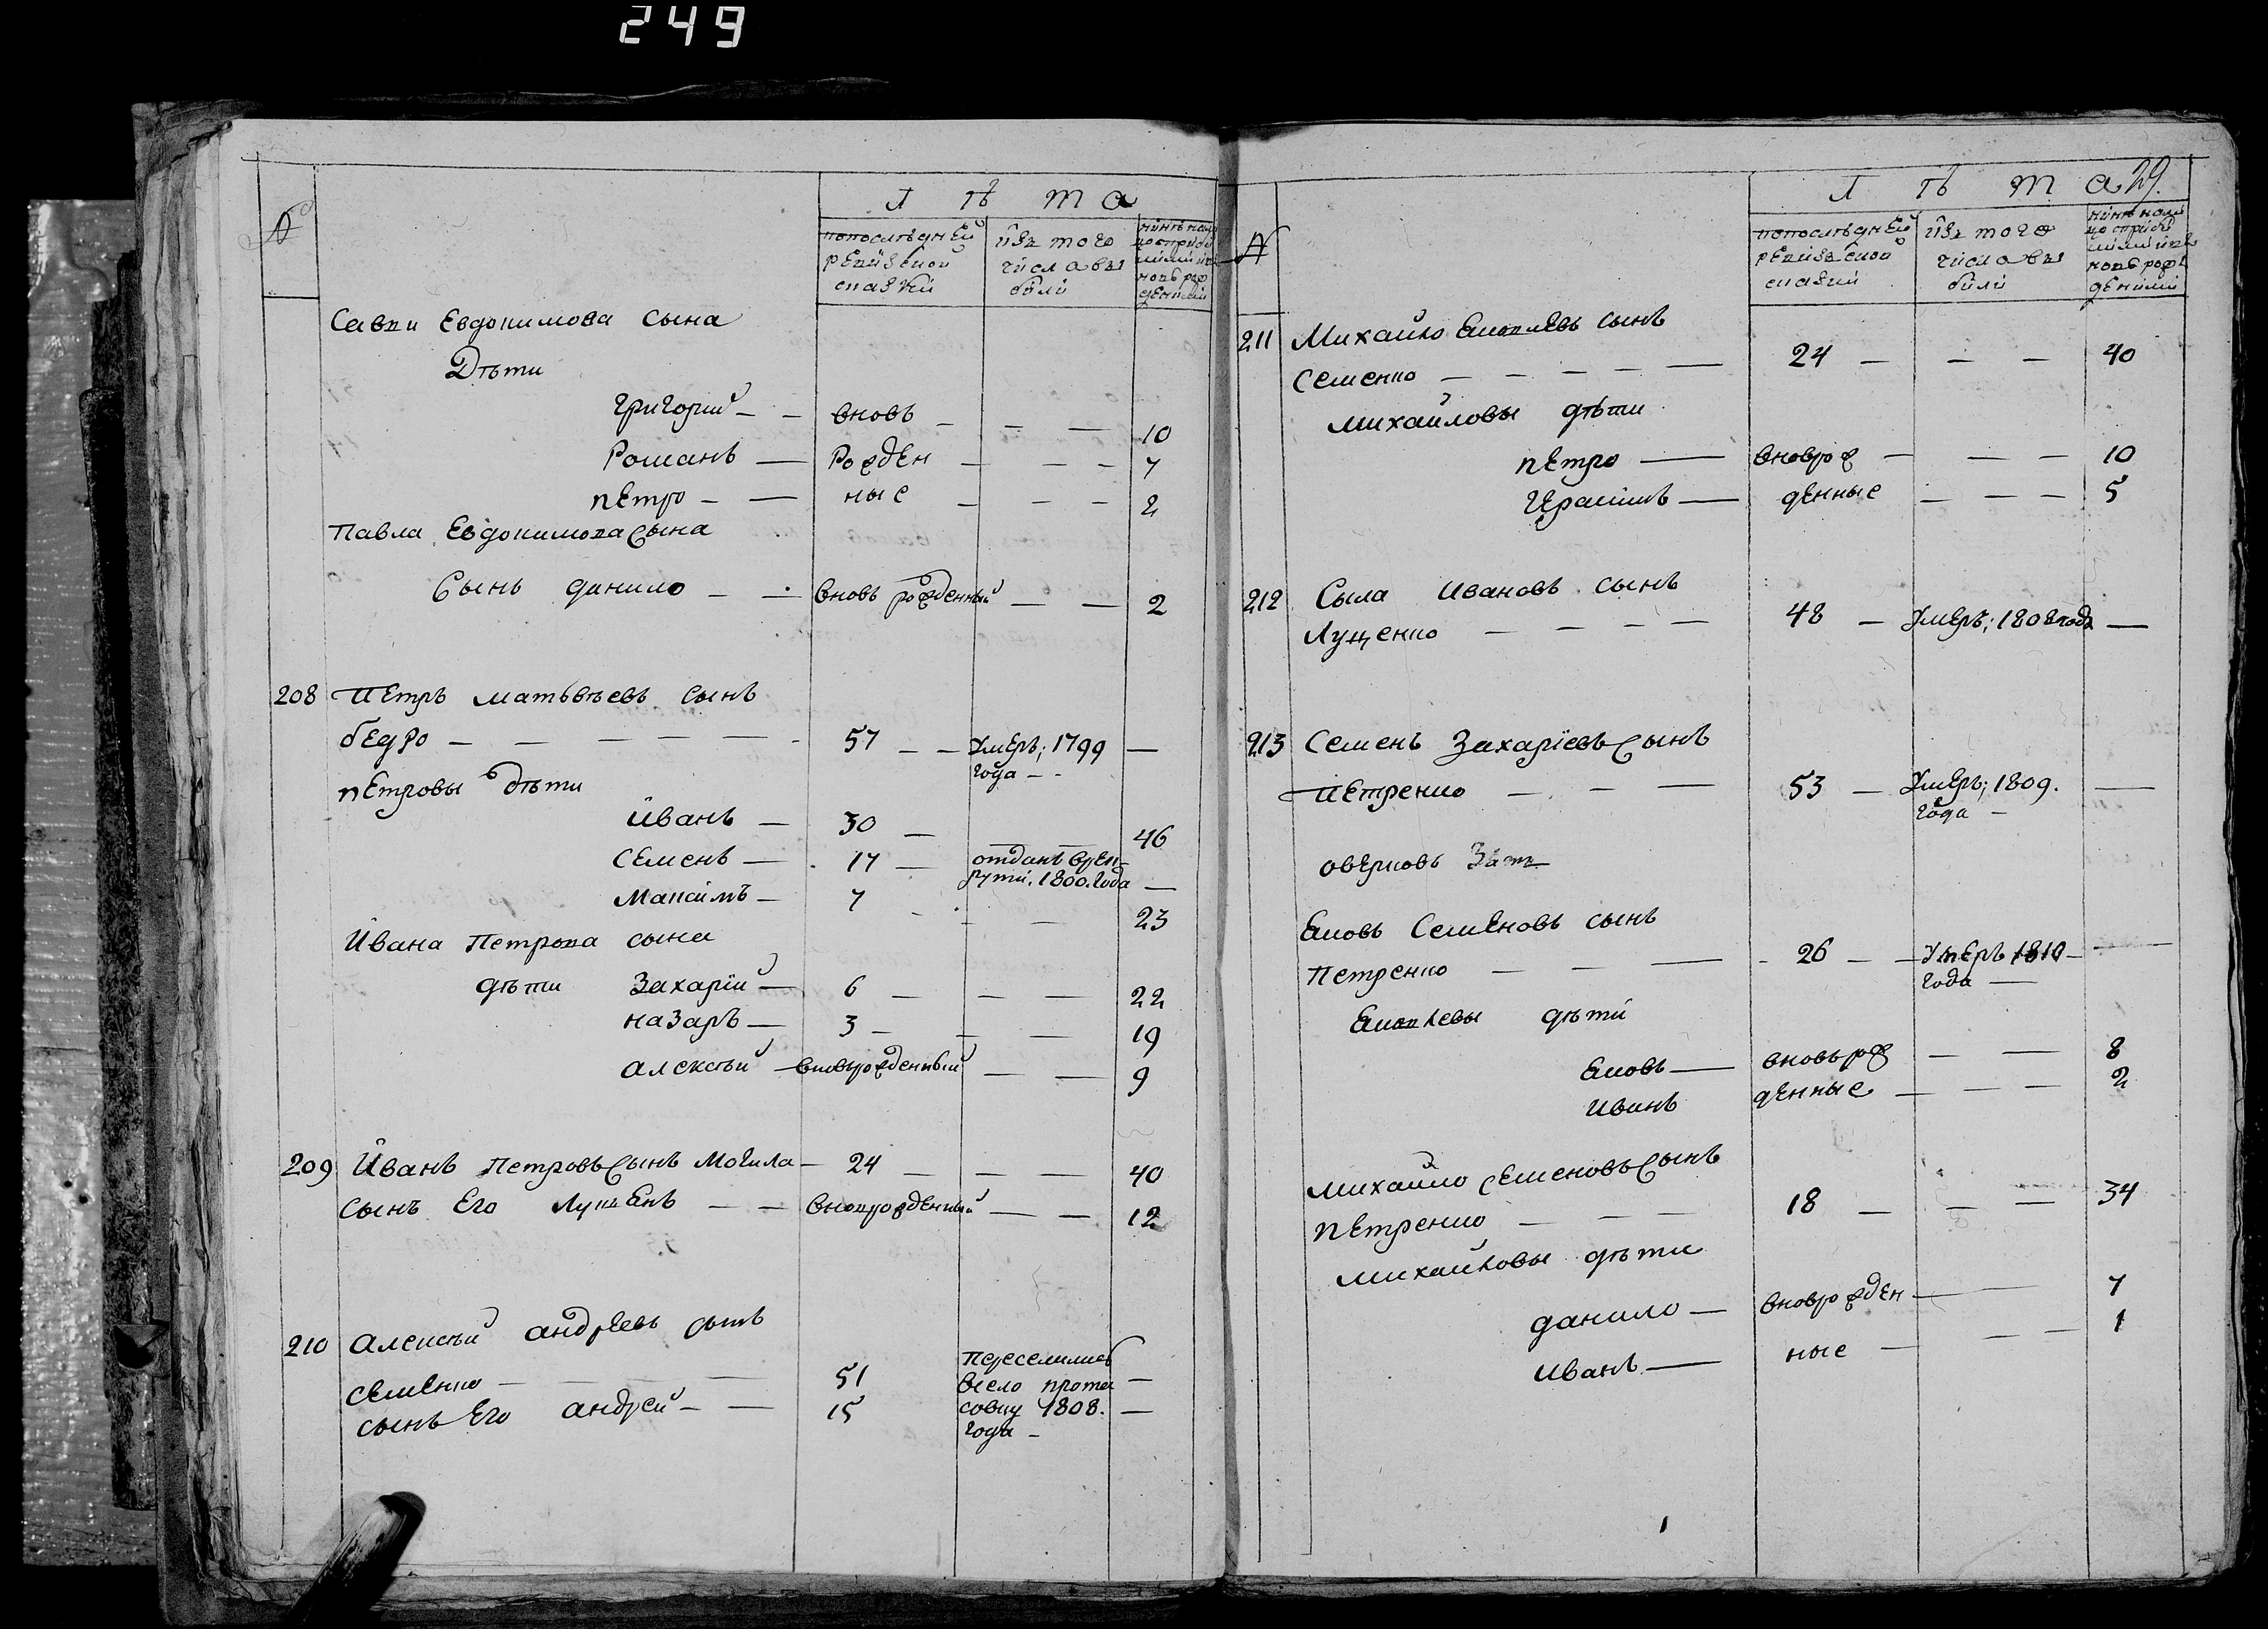 249
№
Л ѣ т а
попослѣдней ревизской сказки
изъ того числа выбыли
нынѣ налицо
Савки Евдокимова сына
Дѣти
Григорий — вновь — — — 10
Романъ — рожден — — — 7
Петро — ные — — — 2
Павла Евдокимова сына
сынъ данило — вновь рожденный — — 2
208 Петръ матьвѣевъ сынъ
бедро — 57 — умеръ; 1799 —
года —
Петровы дѣти
Иванъ — 30 — — 46
Семенъ — 17 — отданъ врек-
рути. 1800. года —
Максимъ — 7 — — 23
Ивана Петрова сына
дѣти Захарий — 6 — — — 22
назаръ — 3 — — — 19
алексѣй — вновьрожденный — — 9
209 Иванъ Петровъ сынъ Могила — 24 — — — 40
сынъ Его Лукьянъ — вновьрожденный — — 12
210 алексѣй андреевъ сынъ
Семенко — 51 Переселились —
сынъ Его андрей — 15 всело прота
совку 1808. —
года —
29.
№
Л ѣ т а
попослѣдней ревизской сказки
изъ того числа выбыли
нынѣ налицо
211 Михайло Яковлевъ сынъ
Семенко — 24 — — — 40
михайловы дѣти
Петро — вновьрож — — — 10
Герасимъ — денные — — — 5
212 Сыла Ивановъ сынъ
Лущенко — 48 — умеръ; 1808 года —
213 Семенъ Захариевъ сынъ
Петренко — 53 — умеръ; 1809. —
года —
Зять
Яковъ Семеновъ сынъ
Петренко — 26 — умеръ 1810 —
года —
Яковлевы дѣти
Яковъ — вновьрож — — 8
Иванъ денные — — — 2
михайло Семеновъ сынъ
Петренко — 18 — — — 34
михайловы дѣти
данило — вновьрожден — 7
иванъ — ные — — — 1